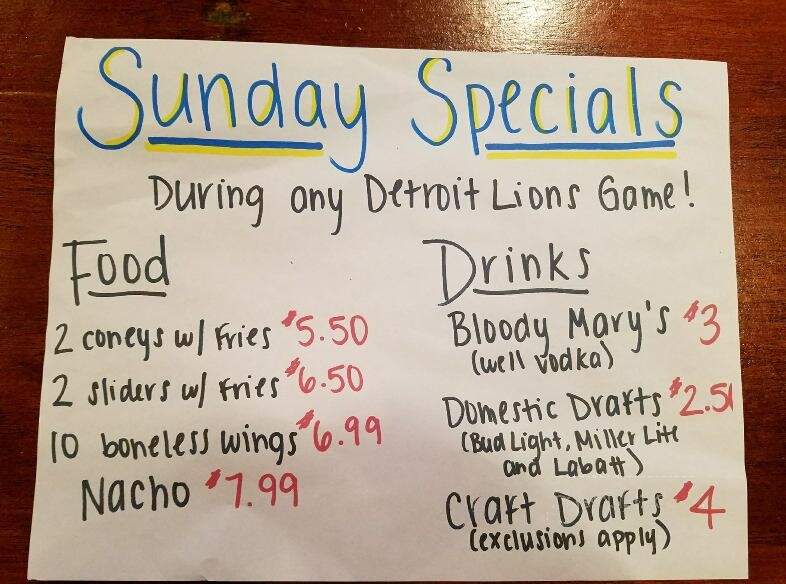 Sunday Specials
During any Detroit Lions Game!
Food
2 coneys w/ Fries $5.50
2 sliders w/ Fries $6.50
10 boneless wings $6.99
Nacho $7.99
Drinks
Bloody Mary's $3
(well vodka)
Domestic Drafts $2.50
(Bud Light, Miller Lite
and Labatt)
Craft Drafts $4
(exclusions apply)